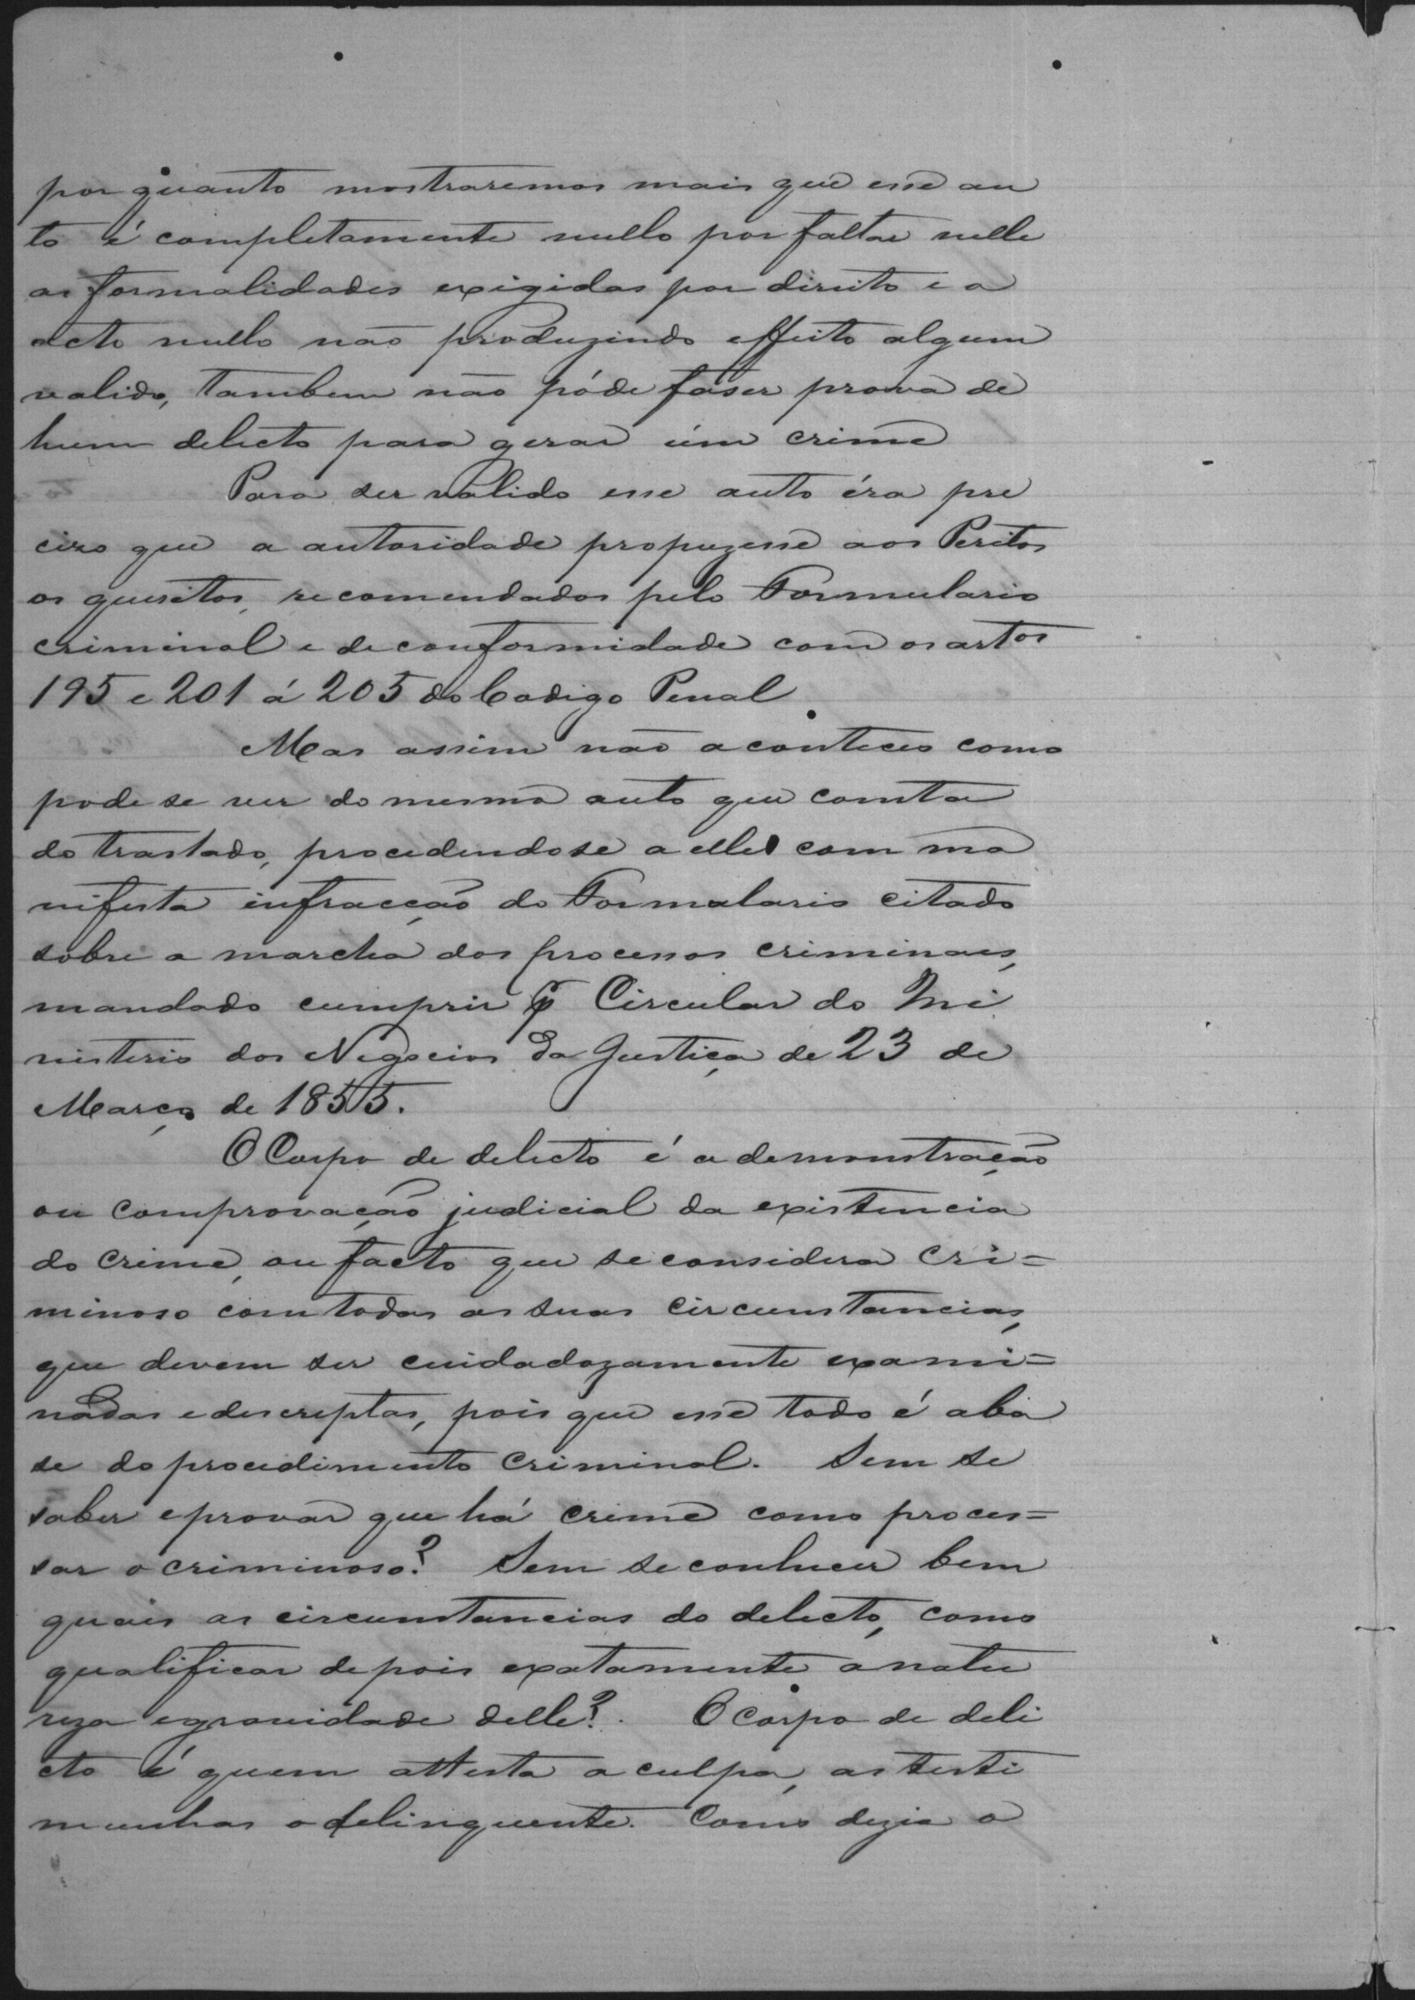 por quanto mostraremos mais que esse au
to é completamente nullo por faltar nelle
as formalidades exigidas por direito e o
acto nullo não produzindo effeito algum
valido, tambem não póde faser prova de
hum delicto para gerar úm crime
Para ser valido esse auto éra pre
ciso que a autoridade propuzesse aos Peritos
os quesitos, recomendados pelo Formulario
criminal e de conformidade com os artos
195 e 201 á 205 do Codigo Penal
Mas assim não aconteceo como
pode se ver do mesmo auto que consta
do traslado, procedendose a elle com ma
nifesta infracção do Formalario citado
sobre a marcha dos processos criminaes,
mandado cumprir p Circular do Mi
nisterio dos Negocios da Justiça de 23 de
Março de 1855.
O Corpo de delicto é a demonstração
ou comprovação judicial da existencia
do crime, ou facto que se considera cri=
minoso com todas as suas circumstancias,
que devem ser cuidadozamente exami=
nadas e descreptas, pois que esse todo é aba
se do procedimento criminal. Sem se
saber e provar que há crime como proces=
sar o criminoso? Sem se conhecer bem
quais as circumstancias do delicto, como
qualificar depois exatamente a natu
reza e gravidade delle?. O corpo de deli
cto é quem attesta a culpa, as teste
munhas o delinquente. Como dezia o